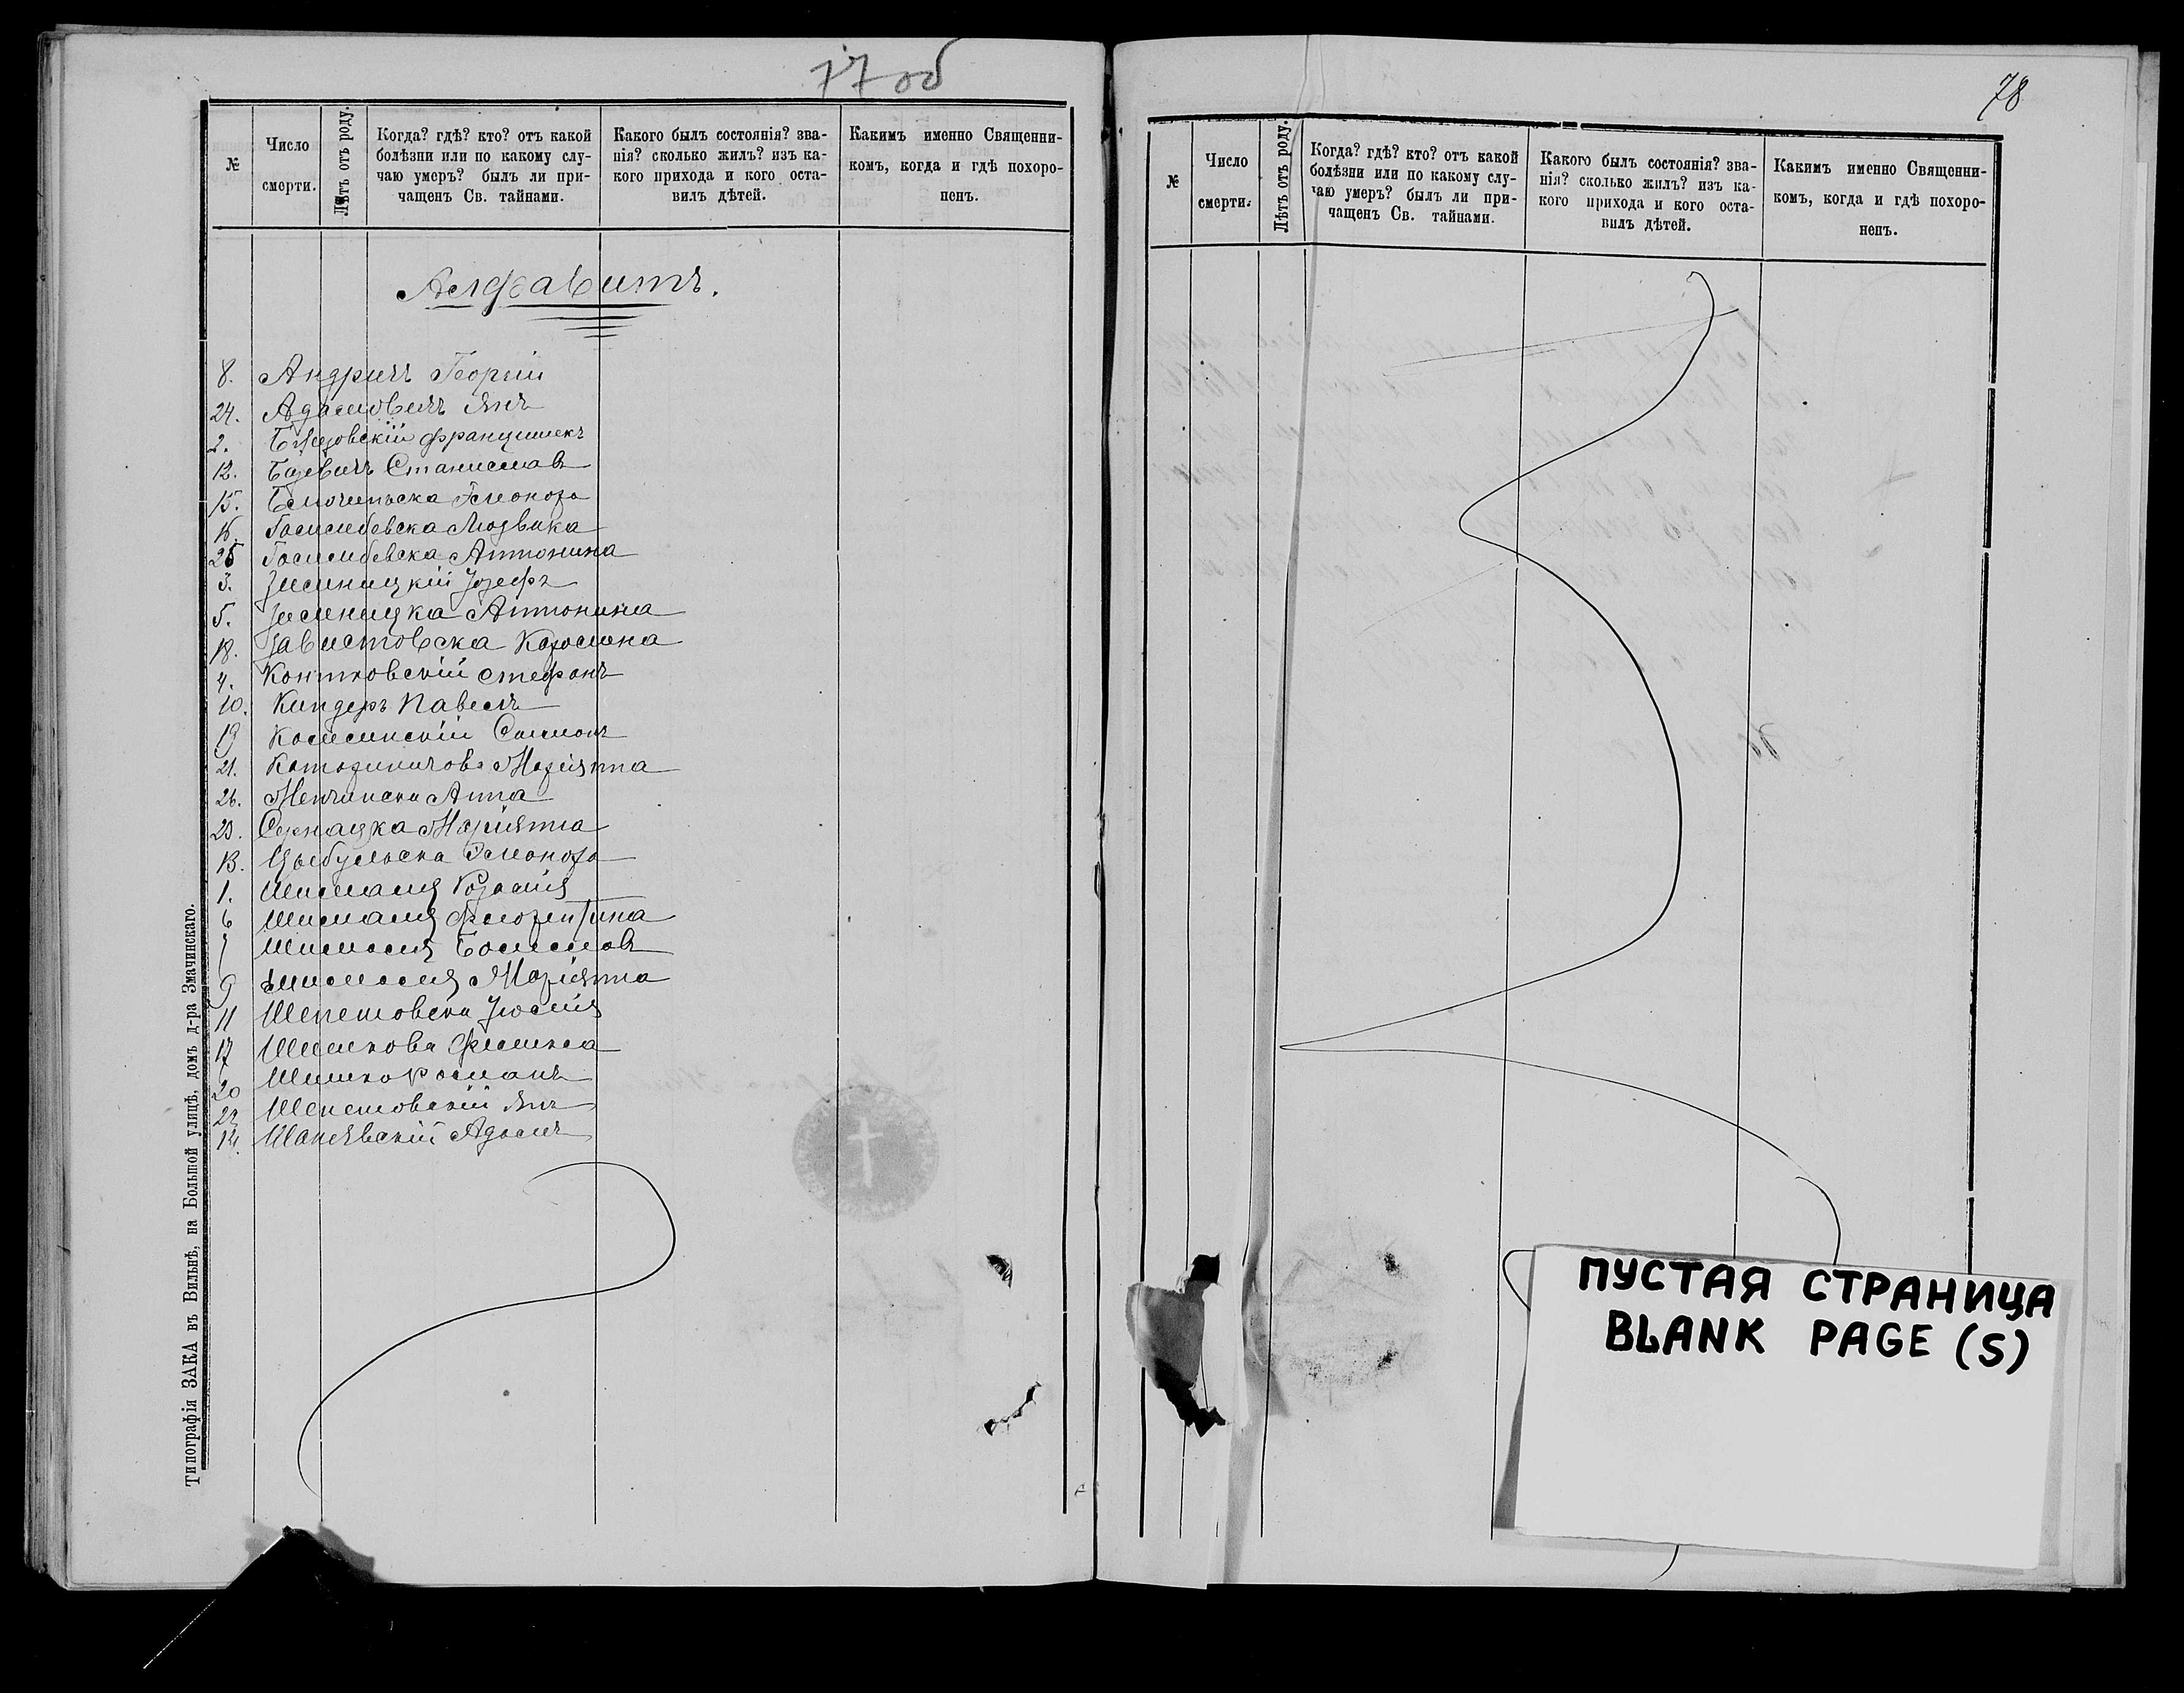 77 об
№
Число
смерти.
Лѣтъ отъ роду.
Когда? гдѣ? кто? отъ какой
болѣзни или по какому слу-
чаю умеръ? былъ ли при-
чащенъ Св. тайнами.
Какого былъ состоянія? зва-
нія? сколько жилъ? изъ ка-
кого прихода и кого оста-
вилъ дѣтей.
Какимъ именно Священни-
комъ, когда и гдѣ похоро-
ненъ.
Алфавитъ.
8. Андричъ Георгій
24. Адамовичъ Янъ
2. Францишекъ
12. Станиславъ
15. Элеонора
16. Людвика
25 Антонина
3. Іозефъ
5. Антонина
18. Завистовска Каролина
4. Контковскій Стефанъ
10. Киндеръ Павелъ
19 Симонъ
21. Маріянна
26. Анна
23. Маріянна
13. Цыбульска Элеонора
1. Шисмаля Розалія
6 Шисмаля Флорентина
7 Шисмаля Болеславъ
9 Шисмаля Маріянна
11 Шепетовска Юлія
17 Шишкова
20 Шишко Романъ
22 Шепетовскій Янъ
14. Адамъ
Типографія ЗАКА въ Вильнѣ, на Большой улицѣ, домъ д-ра Змачинскаго.
78
№
Число
смерти.
Лѣтъ отъ роду.
Когда? гдѣ? кто? отъ какой
болѣзни или по какому слу-
чаю умеръ? былъ ли при-
чащенъ Св. тайнами.
Какого былъ состоянія? зва-
нія? сколько жилъ? изъ ка-
кого прихода и кого оста-
вилъ дѣтей.
Какимъ именно Священни-
комъ, когда и гдѣ похоро-
ненъ.
ПУСТАЯ СТРАНИЦА
BLANK PAGE (S)